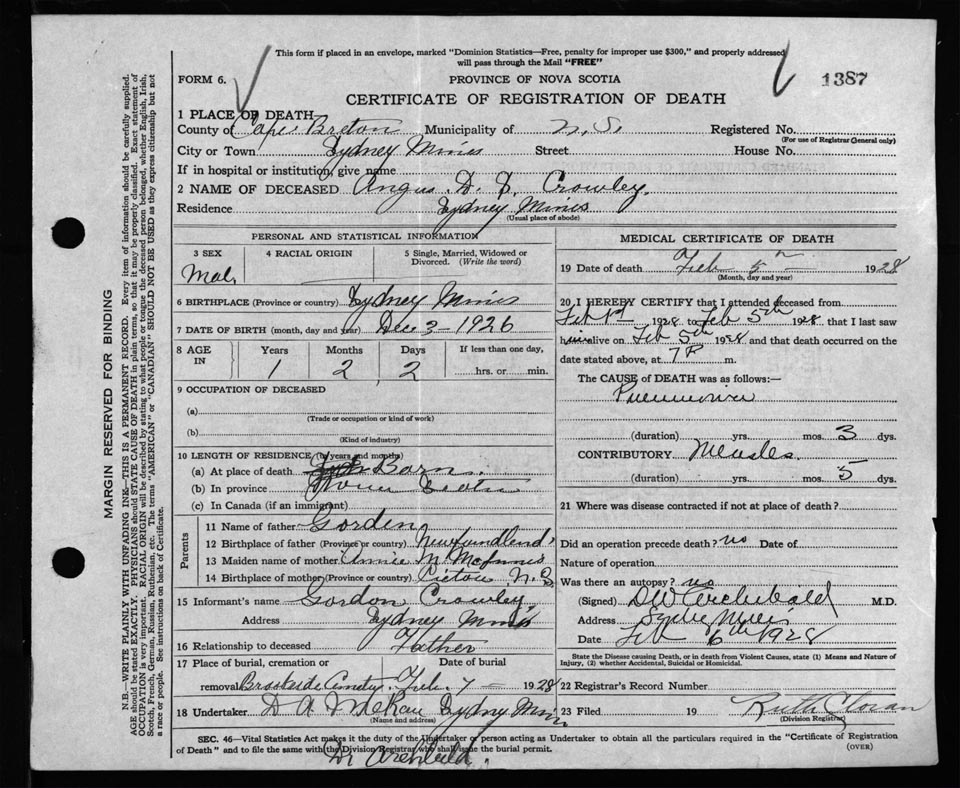 This form if placed in an envelope, marked "Dominion Statistics—Free, penalty for improper use $300," and properly addressed
will pass through the Mail "FREE"
FORM 6.
PROVINCE OF NOVA SCOTIA
1387
CERTIFICATE OF REGISTRATION OF DEATH
1 PLACE OF DEATH
County of Cape Breton Municipality of N. S. Registered No.
(For use of Registrar General only)
City or Town Sydney Mines Street House No.
If in hospital or institution, give name
2 NAME OF DECEASED Angus. D. Crowley.
Residence Sydney Mines
(Usual place of abode)
PERSONAL AND STATISTICAL INFORMATION
3 SEX Male
4 RACIAL ORIGIN
5 Single, Married, Widowed or
Divorced. (Write the word)
6 BIRTHPLACE (Province or country) Sydney Mines
7 DATE OF BIRTH (month, day and year) Dec 3 - 1926
8 AGE IN
Years Months Days If less than one day,
1 2 2 hrs. or min.
9 OCCUPATION OF DECEASED
(a)
(Trade or occupation or kind of work)
(b)
(Kind of industry)
10 LENGTH OF RESIDENCE (in years and months)
(a) At place of death Born.
(b) In province Nova Scotia
(c) In Canada (if an immigrant)
Parents
11 Name of father Gorden
12 Birthplace of father (Province or country) Newfundlend.
13 Maiden name of mother Annie M. McInnis
14 Birthplace of mother (Province or country) Pictou N.S
15 Informant's name Gordon Crowley.
Address Sydney Mines
16 Relationship to deceased Father
17 Place of burial, cremation or Date of burial
removal Brookside Cemetry. Feb. 7 - 1928
18 Undertaker D A Sydney Mines
(Name and address)
MEDICAL CERTIFICATE OF DEATH
19 Date of death Feb 5th - 1928
(Month, day and year)
20 I HEREBY CERTIFY that I attended deceased from
Feb 1st 1928 to Feb 5th 1928 that I last saw
him alive on Feb 5th 1928 and that death occurred on the
date stated above, at 7 P m.
The CAUSE of DEATH was as follows:—
Pneumonia
(duration) yrs. mos. 3 dys.
CONTRIBUTORY Measles.
(duration) yrs. mos. 5 dys.
21 Where was disease contracted if not at place of death?
Did an operation precede death? no Date of
Nature of operation
Was there an autopsy? no
(Signed) DW Archibald M.D.
Address Sydney Mines
Date Feb 6th 1928
State the Disease causing Death, or in death from Violent Causes, state (1) Means and Nature of
Injury, (2) whether Accidental, Suicidal or Homicidal.
22 Registrar's Record Number
23 Filed 19 Ruth
(Division Registrar)
SEC. 46—Vital Statistics Act makes it the duty of the Undertaker or person acting as Undertaker to obtain all the particulars required in the "Certificate of Registration
of Death" and to file the same with the Division Registrar who shall issue the burial permit.
(OVER)
Dr Archibald.
MARGIN RESERVED FOR BINDING
N.B.—WRITE PLAINLY WITH UNFADING INK—THIS IS A PERMANENT RECORD. Every item of information should be carefully supplied.
AGE should be stated EXACTLY. PHYSICIANS should STATE CAUSE OF DEATH in plain terms, so that it may be properly classified. Exact statement of
OCCUPATION is very important. RACIAL ORIGIN will be described by stating to what people or tongue the deceased person belonged, whether English, Irish,
Scotch, French, German, Russian, Ruthenian, etc. The terms "AMERICAN" or "CANADIAN" SHOULD NOT BE USED as they express citizenship but not
a race or people. See instructions on back of Certificate.